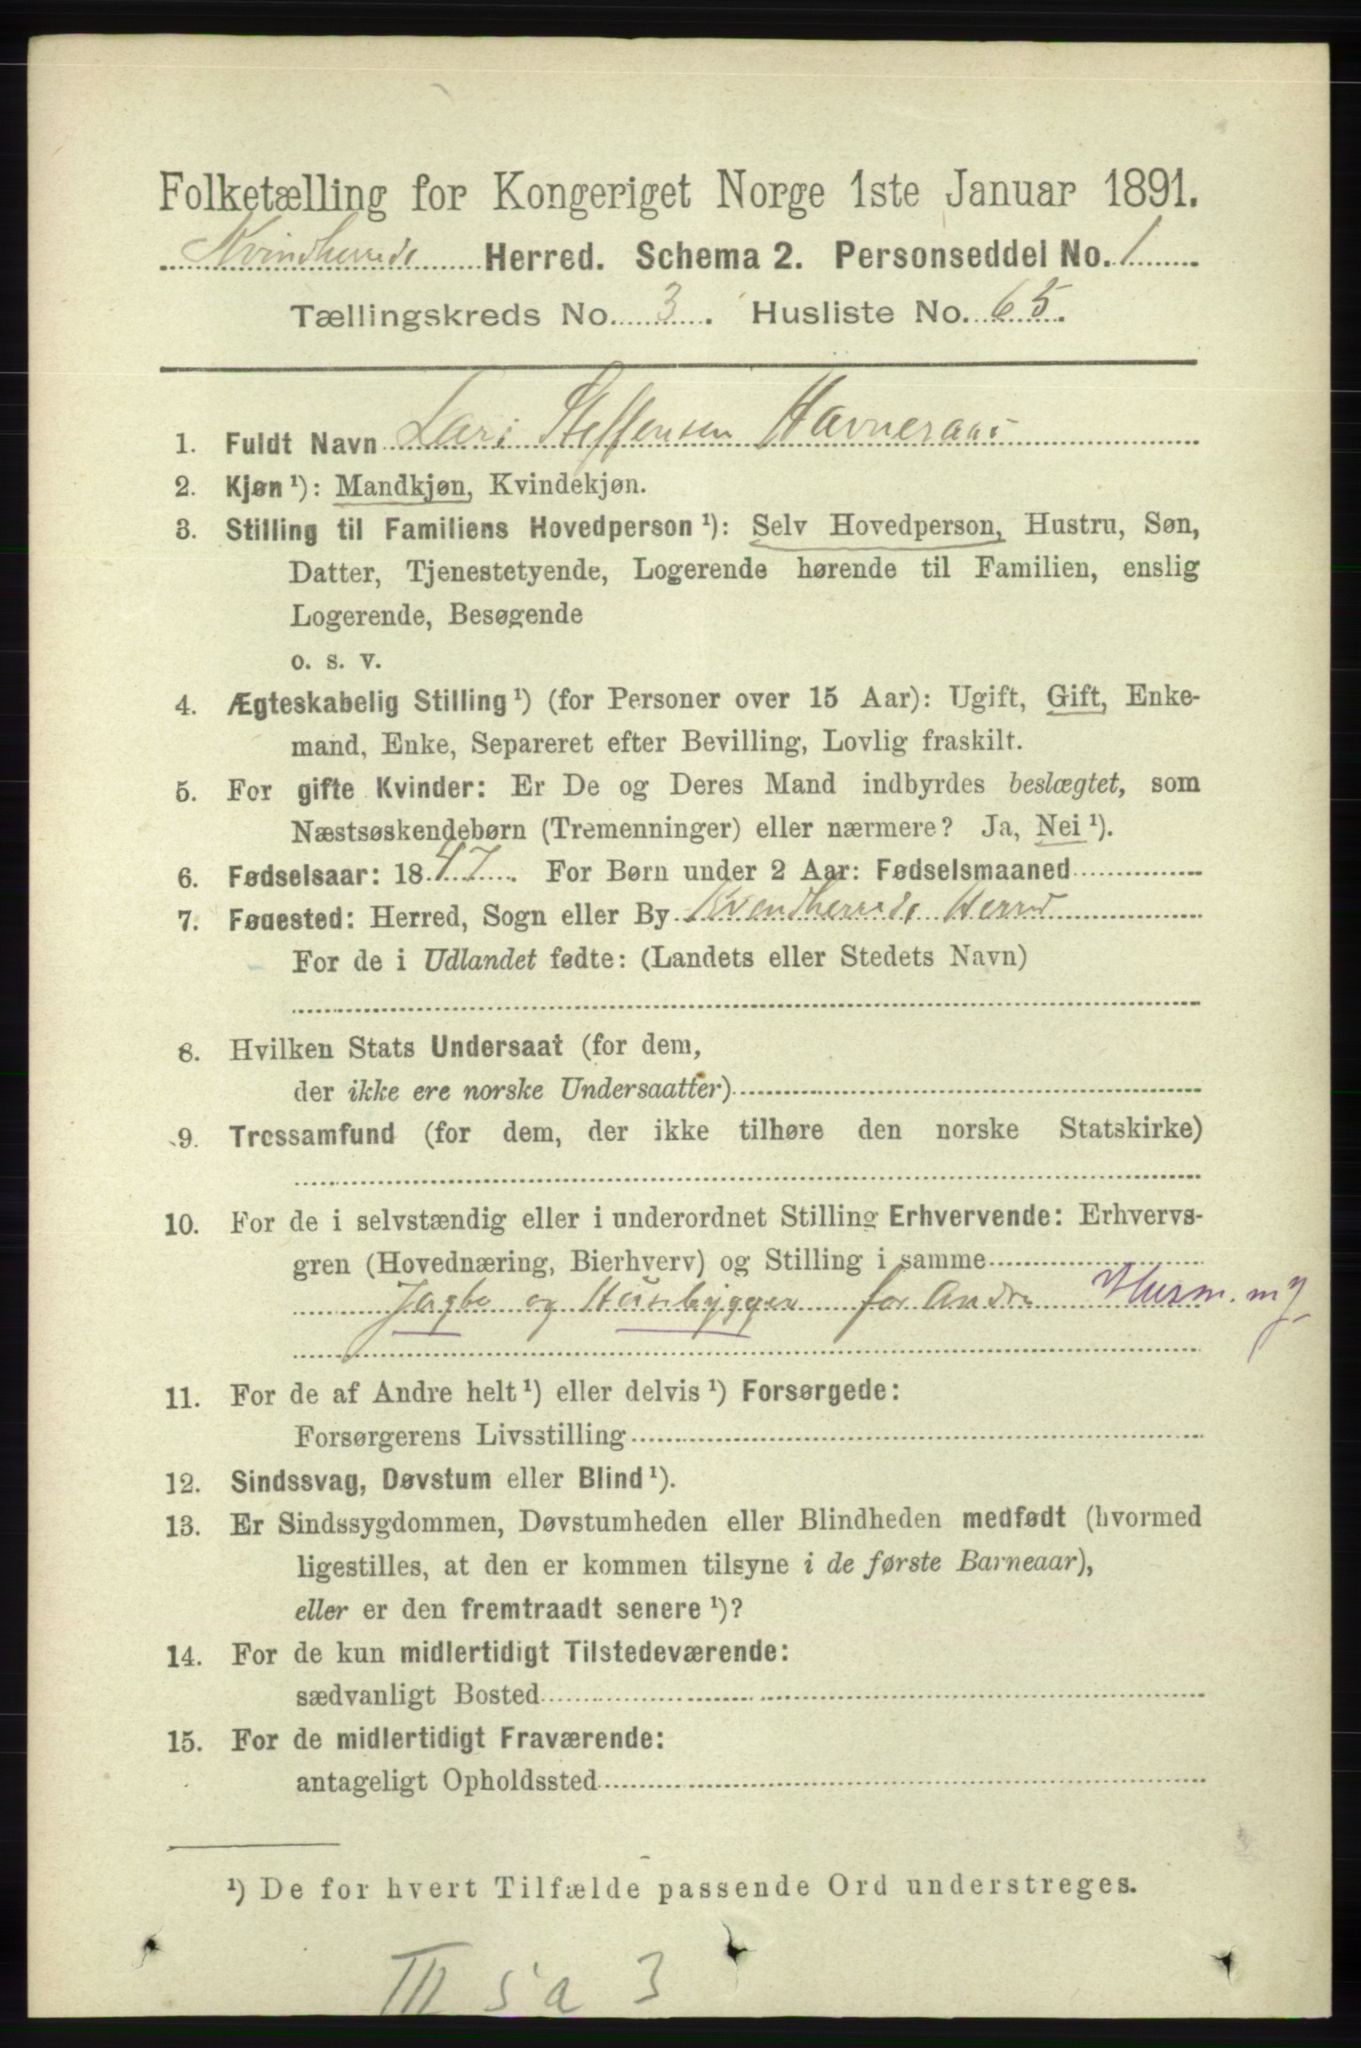 Folketælling for Kongeriget Norge 1ste Januar 1891.
Kvindherreds Herred. Schema 2. Personseddel No. 1
Tællingskreds No. 3. Husliste No. 65.
1. Fuldt Navn Lars Steffensen Havneraas
2. Kjøn ¹): Mandkjøn, Kvindekjøn.
3. Stilling til Familiens Hovedperson ¹): Selv Hovedperson, Hustru, Søn,
Datter, Tjenestetyende, Logerende hørende til Familien, enslig
Logerende, Besøgende
o. s. v.
4. Ægteskabelig Stilling ¹) (for Personer over 15 Aar): Ugift, Gift, Enke-
mand, Enke, Separeret efter Bevilling, Lovlig fraskilt.
5. For gifte Kvinder: Er De og Deres Mand indbyrdes beslægtet, som
Næstsøskendebørn (Tremenninger) eller nærmere? Ja, Nei ¹).
6. Fødselsaar: 1847. For Børn under 2 Aar: Fødselsmaaned
7. Føđested: Herred, Sogn eller By Kvindherreds Herred
For de i Udlandet fødte: (Landets eller Stedets Navn)
8. Hvilken Stats Undersaat (for dem,
der ikke ere norske Undersaatter)
9. Trossamfund (for dem, der ikke tilhøre den norske Statskirke)
10. For de i selvstændig eller i underordnet Stilling Erhvervende: Erhvervs-
gren (Hovednæring, Bierhverv) og Stilling i samme
og Husbygger for Andre Husm. m J
11. For de af Andre helt ¹) eller delvis ¹) Forsørgede:
Forsørgerens Livsstilling
12. Sindssvag, Døvstum eller Blind ¹).
13. Er Sindssygdommen, Døvstumheden eller Blindheden medfødt (hvormed
ligestilles, at den er kommen tilsyne i de første Barneaar),
eller er den fremtraadt senere ¹)?
14. For de kun midlertidigt Tilstedeværende:
sædvanligt Bosted
15. For de midlertidigt Fraværende:
antageligt Opholdssted
¹) De for hvert Tilfælde passende Ord understreges.
III 5a 3